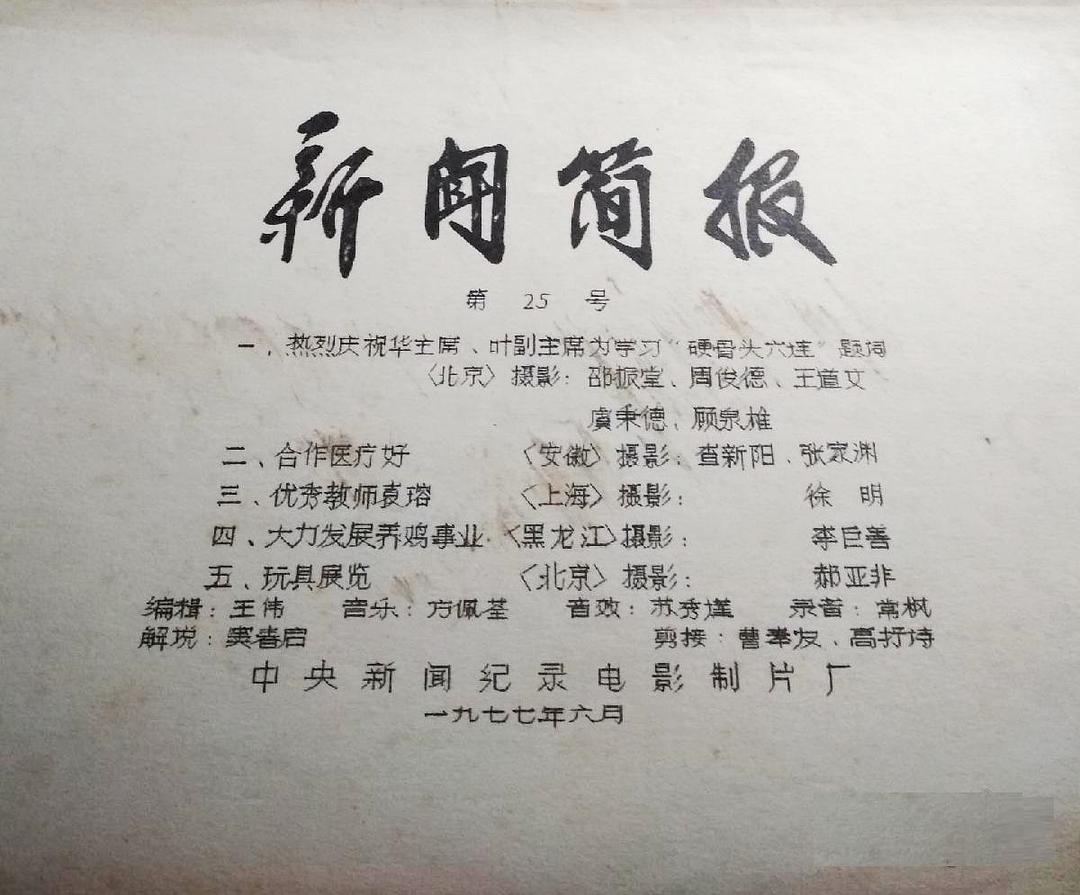 新闻简报
第 25 号
一、热烈庆祝华主席、叶副主席为学习“硬骨头六连”题词
〈北京〉摄影：邵振堂、周俊德、王道文
虞秉德、顾泉雄
二、合作医疗好 〈安徽〉摄影：查新阳、张家渊
三、优秀教师袁瑢 〈上海〉摄影： 徐 明
四、大力发展养鸡事业 〈黑龙江〉摄影： 李巨善
五、玩具展览 〈北京〉摄影： 郝亚非
编辑：王伟 音乐：方佩荃 音效：苏秀瑾 录音：常枫
解说：窦春启 剪接：曹奉友、高抒诗
中央新闻纪录电影制片厂
一九七七年六月